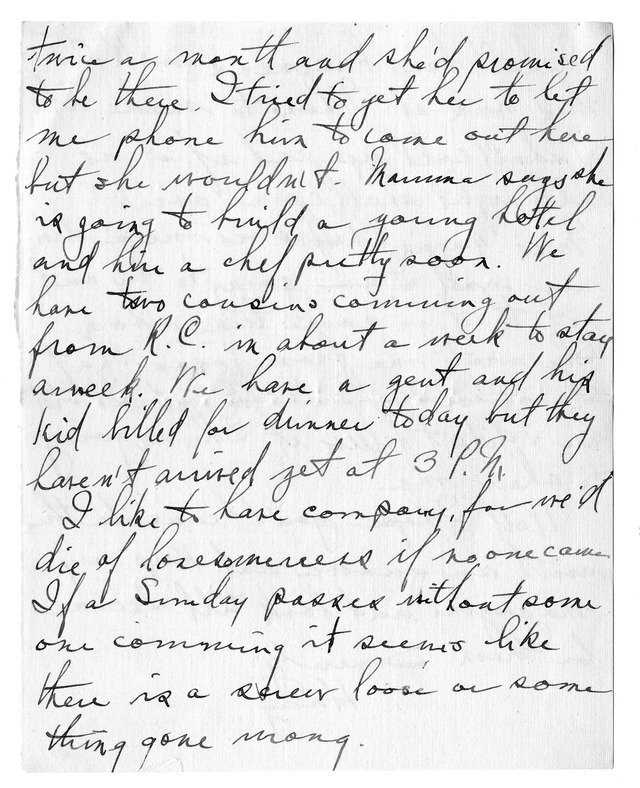 twice a month and she'd promised
to be there. I tried to get her to let
me phone him to come out here
but she wouldn't. Mamma says she
is going to build a young hotel
and hire a chef pretty soon. We
have two cousins comming out
from K.C. in about a week to stay
a week. We have a gent and his
kid billed for dinner today but they
haven't arrived yet at 3 P.M.
I like to have company, for we'd
die of lonesomeness if no one came
If a Sunday passes without some
one comming it seems like
there is a screw loose or some
thing gone wrong.